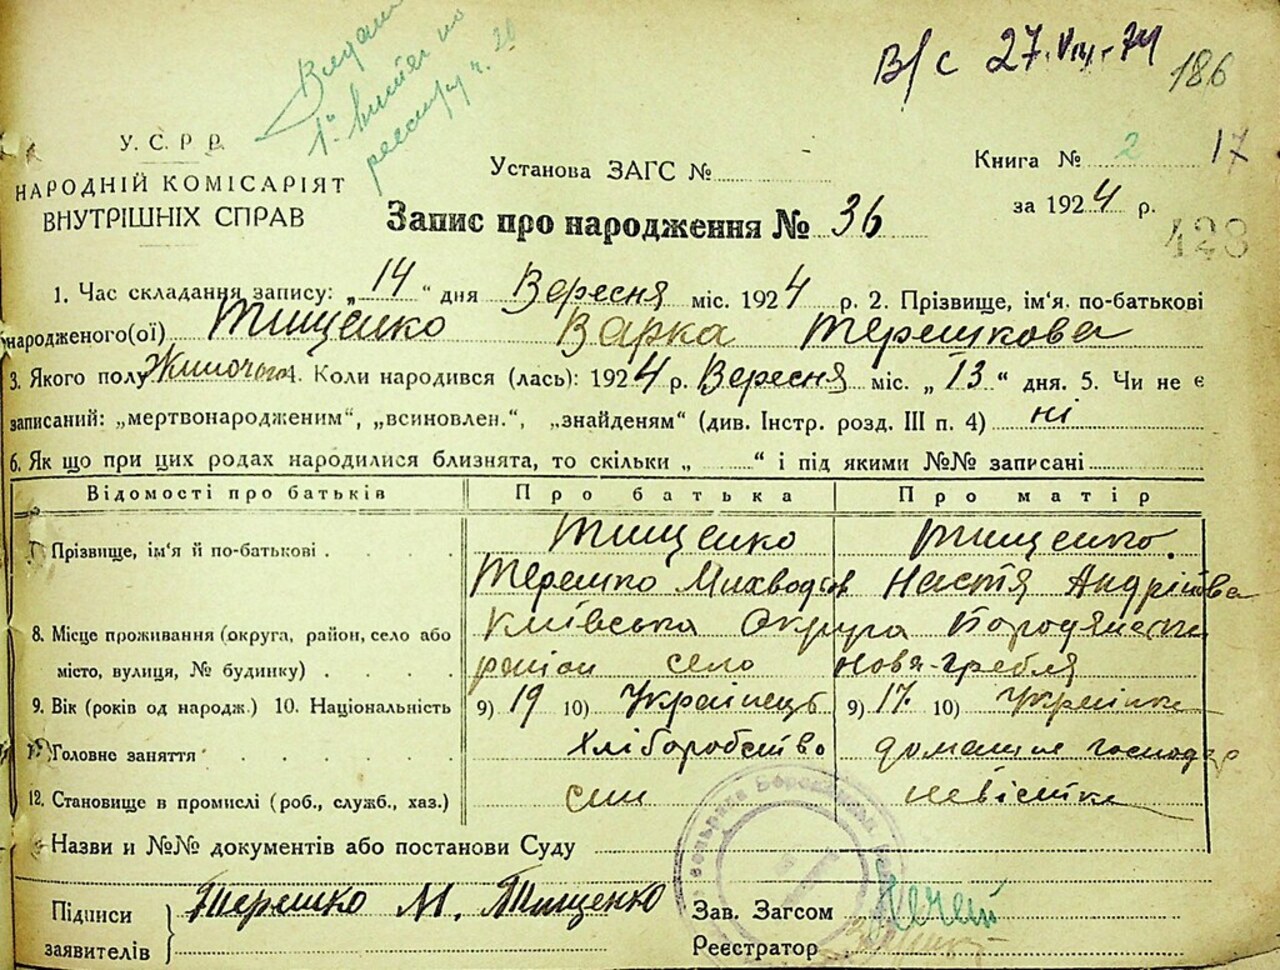 В/с 27.VIII-74 186
У. С. Р. Р.
НАРОДНІЙ КОМІСАРІЯТ
ВНУТРІШНІХ СПРАВ
Установа ЗАГС №
Книга № 2 17
за 1924 р.
428
Запис про народження № 36
1. Час складання запису: „14“ дня Вересня міс. 1924 р. 2. Прізвище, ім'я. по-батькові
народженого(ої) Тищенко Варка Терешкова
3. Якого полу Жиночого 4. Коли народився (лась): 1924 р. Вересня міс. „13“ дня. 5. Чи не є
записаний: „мертвонародженим“, „всиновлен.“, „знайденям“ (див. Інстр. розд. III п. 4) ні
6. Як що при цих родах народилися близнята, то скільки „ “ і під якими №№ записані
Відомості про батьків Про батька Про матір
Прізвище, ім'я й по-батькові Тищенко Тищенко.
Терешко Настя Андріівна
8. Місце проживання (округа, район, село або Київська Округа
місто, вулиця, № будинку) район село Нова-Гребля
9. Вік (років од народж.) 10. Національність 9) 19 10) Українець 9) 17. 10) Українка
Головне заняття Хліборобство домашнє господар
12. Становище в промислі (роб., служб., хаз.) син невістка
Назви и №№ документів або постанови Суду
Підписи
заявителів
Терешко М. Тищенко
Зав. Загсом
Реєстратор